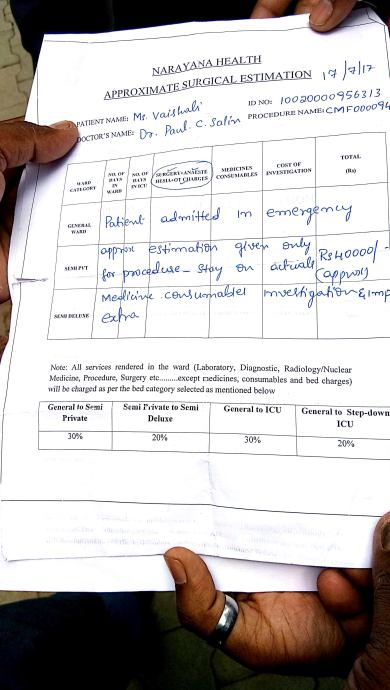 NARAYANA HEALTH
APPROXIMATE SURGICAL ESTIMATION 17/7/17
PATIENT NAME: Ms. Vaishali ID NO: 10020000956313
DOCTOR'S NAME: Dr. Paul. C. Salin PROCEDURE NAME: CMF000094
WARD CATEGORY NO. OF DAYS IN WARD NO. OF DAYS IN ICU SURGERY+ANAESTHESIA+OT CHARGES MEDICINES CONSUMABLES COST OF INVESTIGATION TOTAL (Rs)
GENERAL WARD Patient admitted in emergency
SEMI PVT approx estimation given only
for procedure - stay on actuals Rs 40000/- (approx)
SEMI DELUXE Medicine consumables investigation & imp
extra
Note: All services rendered in the ward (Laboratory, Diagnostic, Radiology/Nuclear
Medicine, Procedure, Surgery etc.........except medicines, consumables and bed charges)
will be charged as per the bed category selected as mentioned below
General to Semi Private Semi Private to Semi Deluxe General to ICU General to Step-down ICU
30% 20% 30% 20%